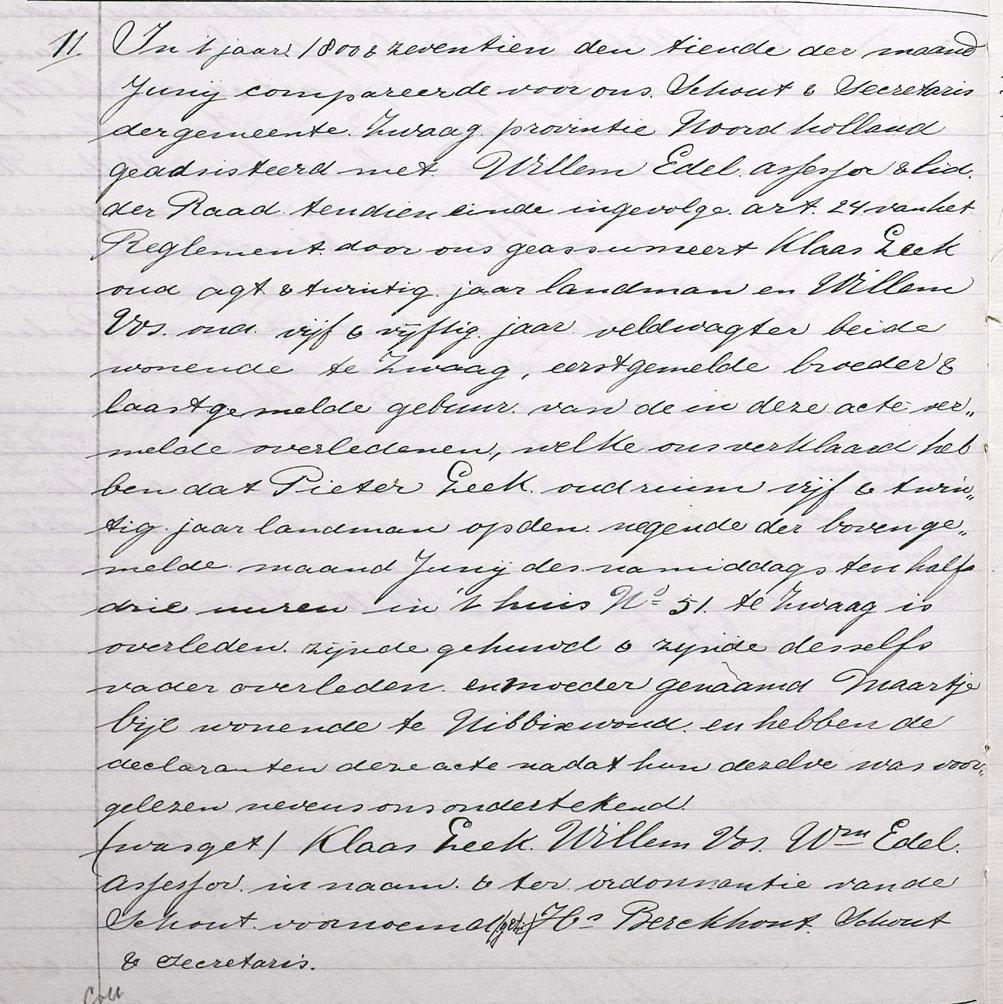 11. In 't jaar 1800 & zeventien den tiende der maand
Junij compareerde voor ons. Schout & Secretaris
der gemeente. Zwaag. provintie Noord holland
geadsisteerd met Willem Edel. assessor & lid.
der Raad. ten dien einde ingevolge. art. 24 van het
Reglement. door ons geassumeert Klaas Leek
oud agt & twintig. jaar landman en Willem
Vos. oud. vijf & vijftig. jaar veldwagter beide
wonende te Zwaag, eerstgemelde broeder &
laastgemelde gebuur. van de in deze acte ver„
melde overledenen, welke ons verklaard heb
ben dat Pieter Leek. oud ruim vijf & twin„
tig. jaar landman op den. negende der bovenge„
melde. maand Junij des namiddags ten half
drie uuren in 't huis No 51. te Zwaag is
overleden. zijnde gehuwd & zijnde desselfs
vader overleden. en moeder genaamd Maartje
Bijl wonende te Nibbixwoud. en hebben de
declaranten deze acte nadat hun dezelve was voor„
gelezen nevens ons ondertekend.
(was get) Klaas Leek. Willem Vos. Wm Edel.
assessor. in naam. & ter ordonnantie van de
Schout. voornoemd (get:) Hs Berckhout. Schout
& Secretaris.
Coll